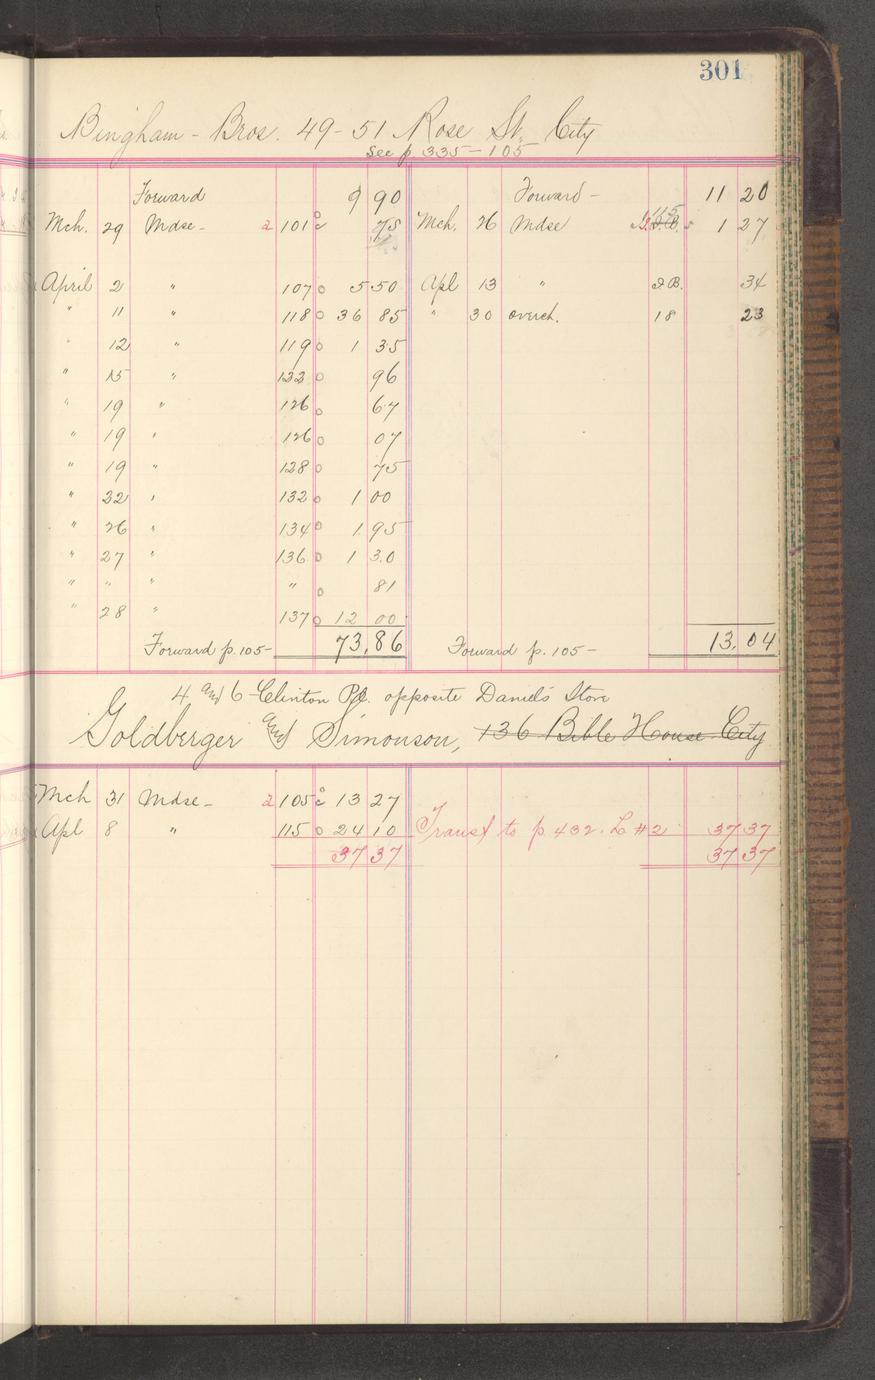 301
Bingham - Bros. 49-51 Rose St. City
See p. 335-105
Forward 9 90 Forward - 11 20
Mch. 29 Mdse - 2 101 75 Mch. 26 Mdse 115 1 27
April 2 " 107 0 5 50 Apl 13 " I.B. 34
" 11 " 118 0 36 85 " 30 overch. 18 23
" 12 " 119 0 1 35
" 15 " 122 0 96
" 19 " 126 0 67
" 19 " 126 0 07
" 19 " 128 0 75
" 22 " 132 0 1 00
" 26 " 134 0 1 95
" 27 " 136 0 1 30
" " " " 0 81
" 28 " 137 0 12 00
Forward p. 105 - 73.86 Forward p. 105 - 13.04
4 and 6 Clinton Pl. opposite Daniels Store
Goldberger and Simonson, 136 Bible House City
Mch 31 Mdse - 2 105 13 27
Apl 8 " 115 0 24 10 Transf to p 432. L #2 37 37
37 37 37 37